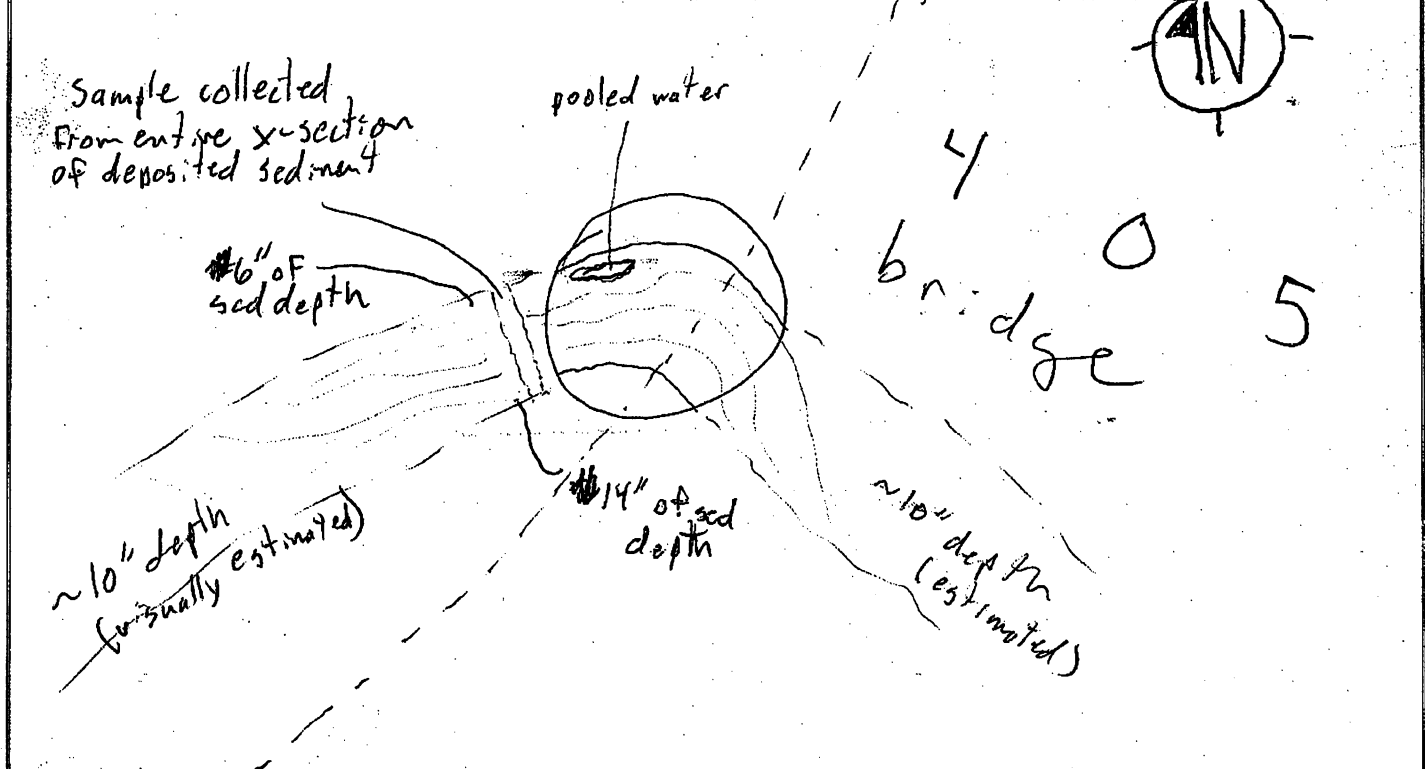 N
Sample collected
from entire x-section
of deposited sediment
pooled water
4
0
5
bridge
6" of
sed depth
14" of sed
depth
~10" depth
(visually estimated)
~10" depth
(estimated)